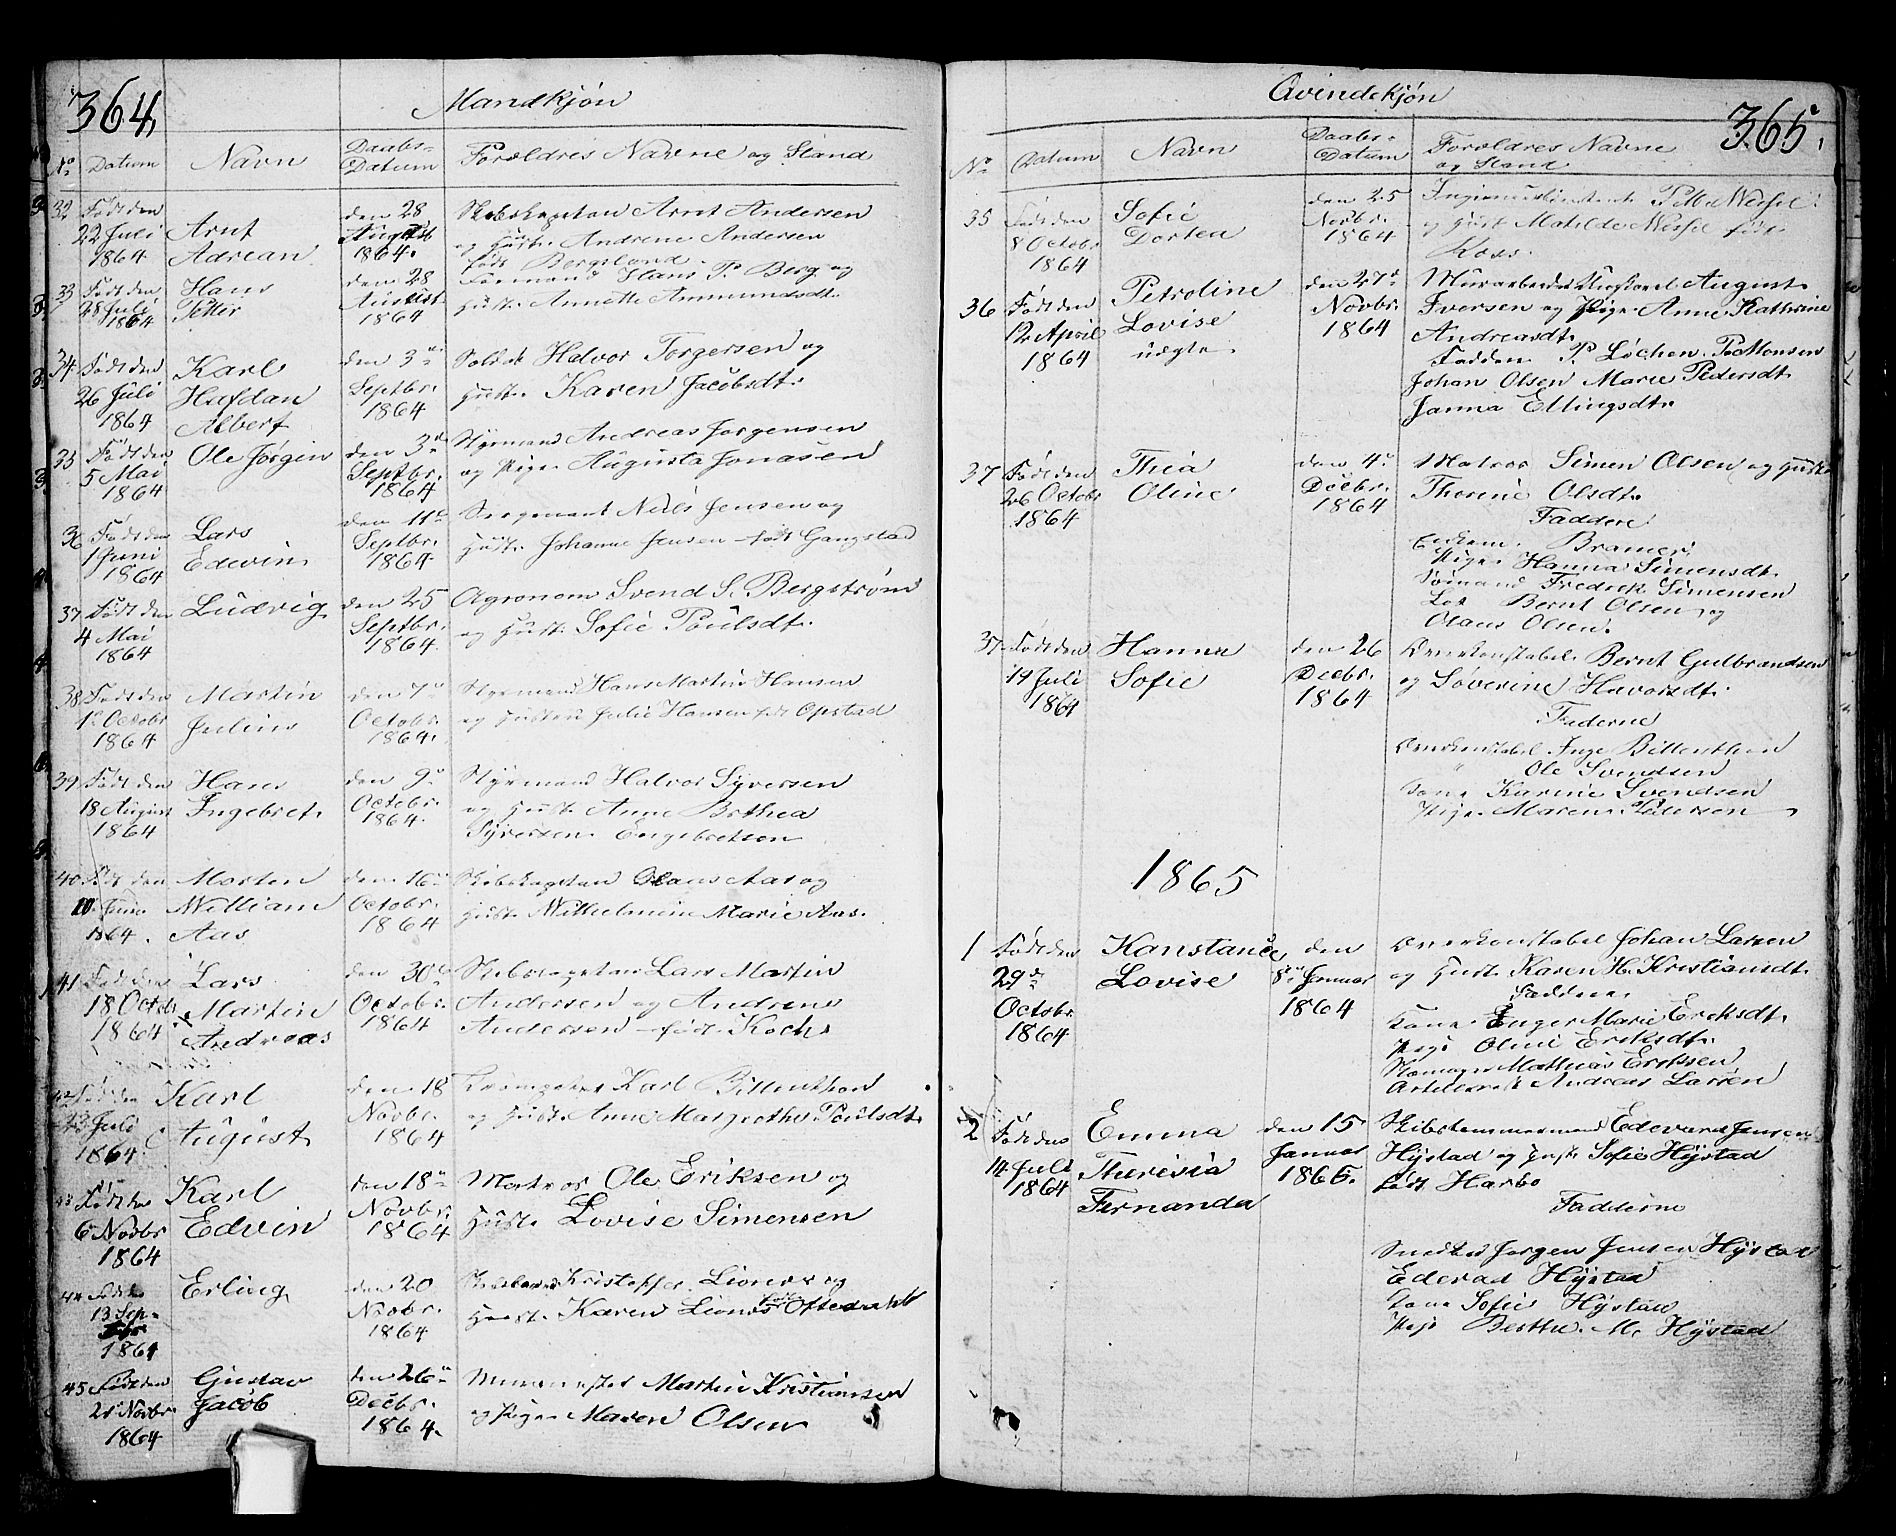 364,
Mandkjøn
No Datum Navn Daabs-Datum Forældres Navne og Stand
32 Født den 22 Juli 1864
Arnt Adrean
den 28 August 1864.
Skibskapetan Arnt Andersen
og Hust. Andrene Andersen
født Bergsland
33 Født den 28 Juli 1864
Hans Petter
den 28 August 1864
Formand Hans P. Berg og
Hust. Annette Ammundsdt.
34 Født den 26 Juli 1864
Karl Hafdan Albert
den 3 Septbr. 1864
Soldat Halvor Torgersen og
Hust. Karen Jacobsdt.
35 Født den 5 Mai 1864
Ole Jørgin
den 3 Septbr. 1864
Styrmand Andreas Jørgensen
og Pige Augusta Jonasen
36 Født den 1 Juni 1864
Lars Edevin
den 11 Septbr. 1864
Niels Jensen og
Hust. Johanne Jensen født Gangstad
37 Født den 4 Mai 1864
Ludvig
den 25 Septbr. 1864
Agronom Svend S. Bergstrøm
og Hust. Sofie Poulsdt.
38 Født den 1 Octobr 1864
Martin Julius
den 7 Octobr. 1864.
Styrmand Hans Martin Hansen
og Hustru Julie Hansen født Opstad
39 Født den 18 August 1864
Hans Ingebret
den 9 Octobr. 1864
Styrmand Halvor Syversen
og Hust. Anne Brthea
Syversen Engebretsen
40 Født den Juni 1864.
Morten William Aas
den 16 Octobr. 1864
Skibskapetan Aas og
Hust. Wilhelmine Marie Aas.
41 Født den 18 Octobr 1864
Lars Martin Andreas
den 30 Octobr. 1864
Skibskapetan Lars Martin
Andersen og Andrene
Andersen født Koch
42 Født den Juli 1864
Karl August
den 18 Novbr. 1864
Karl
og Hust. Anne Margrethe Poulsdt.
43 Født den 6 Novbr 1864
Karl Edvin
den 18 Novbr. 1864
Matros Ole Eriksen og
Hust. Lovise Simensen
44 Født den 13 Sep- 1864
Erling
den 20 Novbr. 1864
Kristoffer og
Hust. Karen
45 Født den 21 Novbr. 1864
Gustav Jacob
den 26 Decbr. 1864.
Martin Kristiansen
og Pige Maren Olsen
365.
Qvindekjøn
No Datum Navn Daabs-Datum Forældres Navne og Stand
35 Født den 8 Octobr 1864
Sofie Dortea
den 25 Novbr. 1864
og Hust. Matilde Wessel født
36 Født den 12 April 1864
Petroline Lovise uægte.
den 27 Novbr. 1864
August
Iversen og Pige Anne Kathrine
Andreasdt.
Fadderne P. Lochen P. Monsen
Johan Olsen Marie Pedersdt.
Janna Ellingsdt.
37 Født den 26 Octobr 1864
Thea Oline
den 4 Decbr. 1864
Matros Simen Olsen og Hustru
Thorine Olsdt.
Faddere
Enkem. Bramer
Pige Hanna Simensdt.
Sømand Fredrik Simensen
Los Bernt Olsen og
Olaus Olsen.
37 Født den 19 Juli 1864
Hanna Sofie
den 26 Decbr. 1864
Overkonstabel Bernt Gulbrandsen
og Soverine Havorsdt.
Faderne
Overkonstabel Inge
" Ole Svendsen
Kona Karine Svendsen
Pige Maren Pedersen
1865
1 Født den 29 Octobr 1864
Kanstance Lovise
den 8 Januar 1864
Overkonstabel Johan Larsen
og Hust. Karen H. Kristiansdt.
Fadderne
Kona Enger Marie Ericksdt.
Pige Oline Eriksdt.
Mathias Eriksen
Andreas Larsen
2 Født den 14 Juli 1864
Emma Theresia Fernanda
den 15 Januar 1865.
Skibstømmermand Edevard Jensen
Hystad og Hust. Sofie Hystad
født Harbo
Fadderne
Jørgen Jensen Hystad
Edevad Hystad
Kona Sofie Hystad
Pige Berthe. M. Hystad